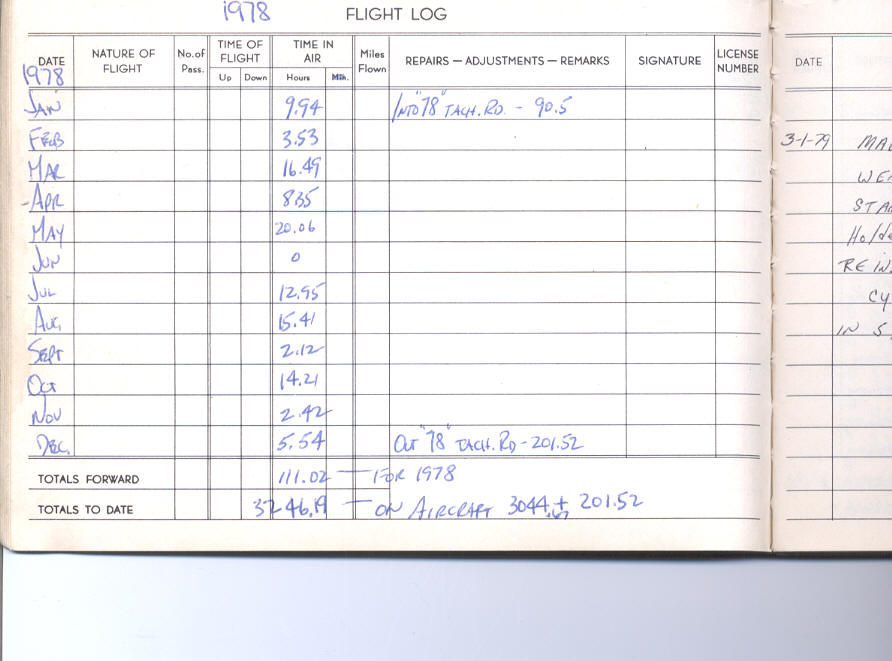 1978 FLIGHT LOG
DATE 1978 NATURE OF FLIGHT No. of Pass. TIME OF FLIGHT Up Down TIME IN AIR Hours Min. Miles Flown REPAIRS — ADJUSTMENTS — REMARKS SIGNATURE LICENSE NUMBER
JAN 9.94 INTO "78" TACH. RD. - 90.5
FEB 3.53
MAR 16.49
APR 8.35
MAY 20.06
JUN 0
JUL 12.95
AUG 15.41
SEPT 2.12
OCT 14.21
NOV 2.42
DEC. 5.54 OUT "78" TACH. RD - 201.52
TOTALS FORWARD 111.02 — FOR 1978
TOTALS TO DATE 3246.19 — ON AIRCRAFT 3044.67 + 201.52
DATE
3-1-79 MA
WE
STA
Hold
REIN
CY
IN S